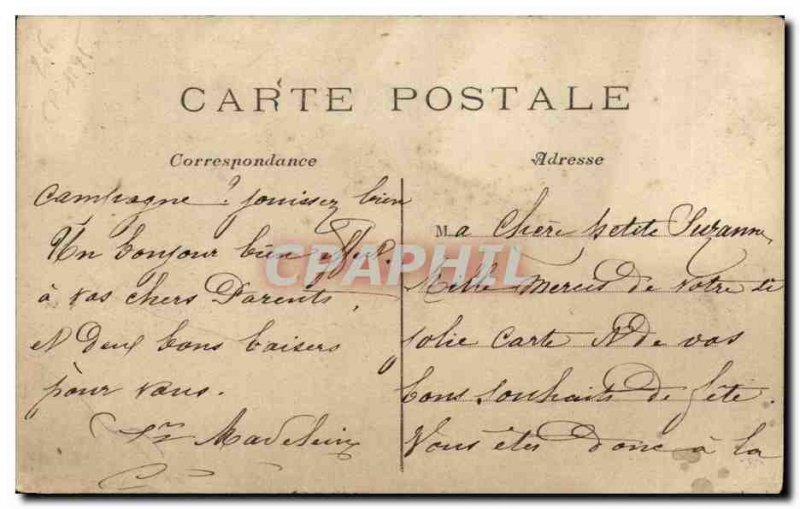 CARTE POSTALE
Correspondance
Adresse
Ma Chère petite Suzanne,
Mille mercis de votre si
jolie carte & de vos
bons souhaits de fête.
Vous êtes donc à la
campagne? jouissez bien
Un bonjour bien
à vos chers Parents,
et deux bons baisers
pour vous.
Madeleine
CPAPHIL